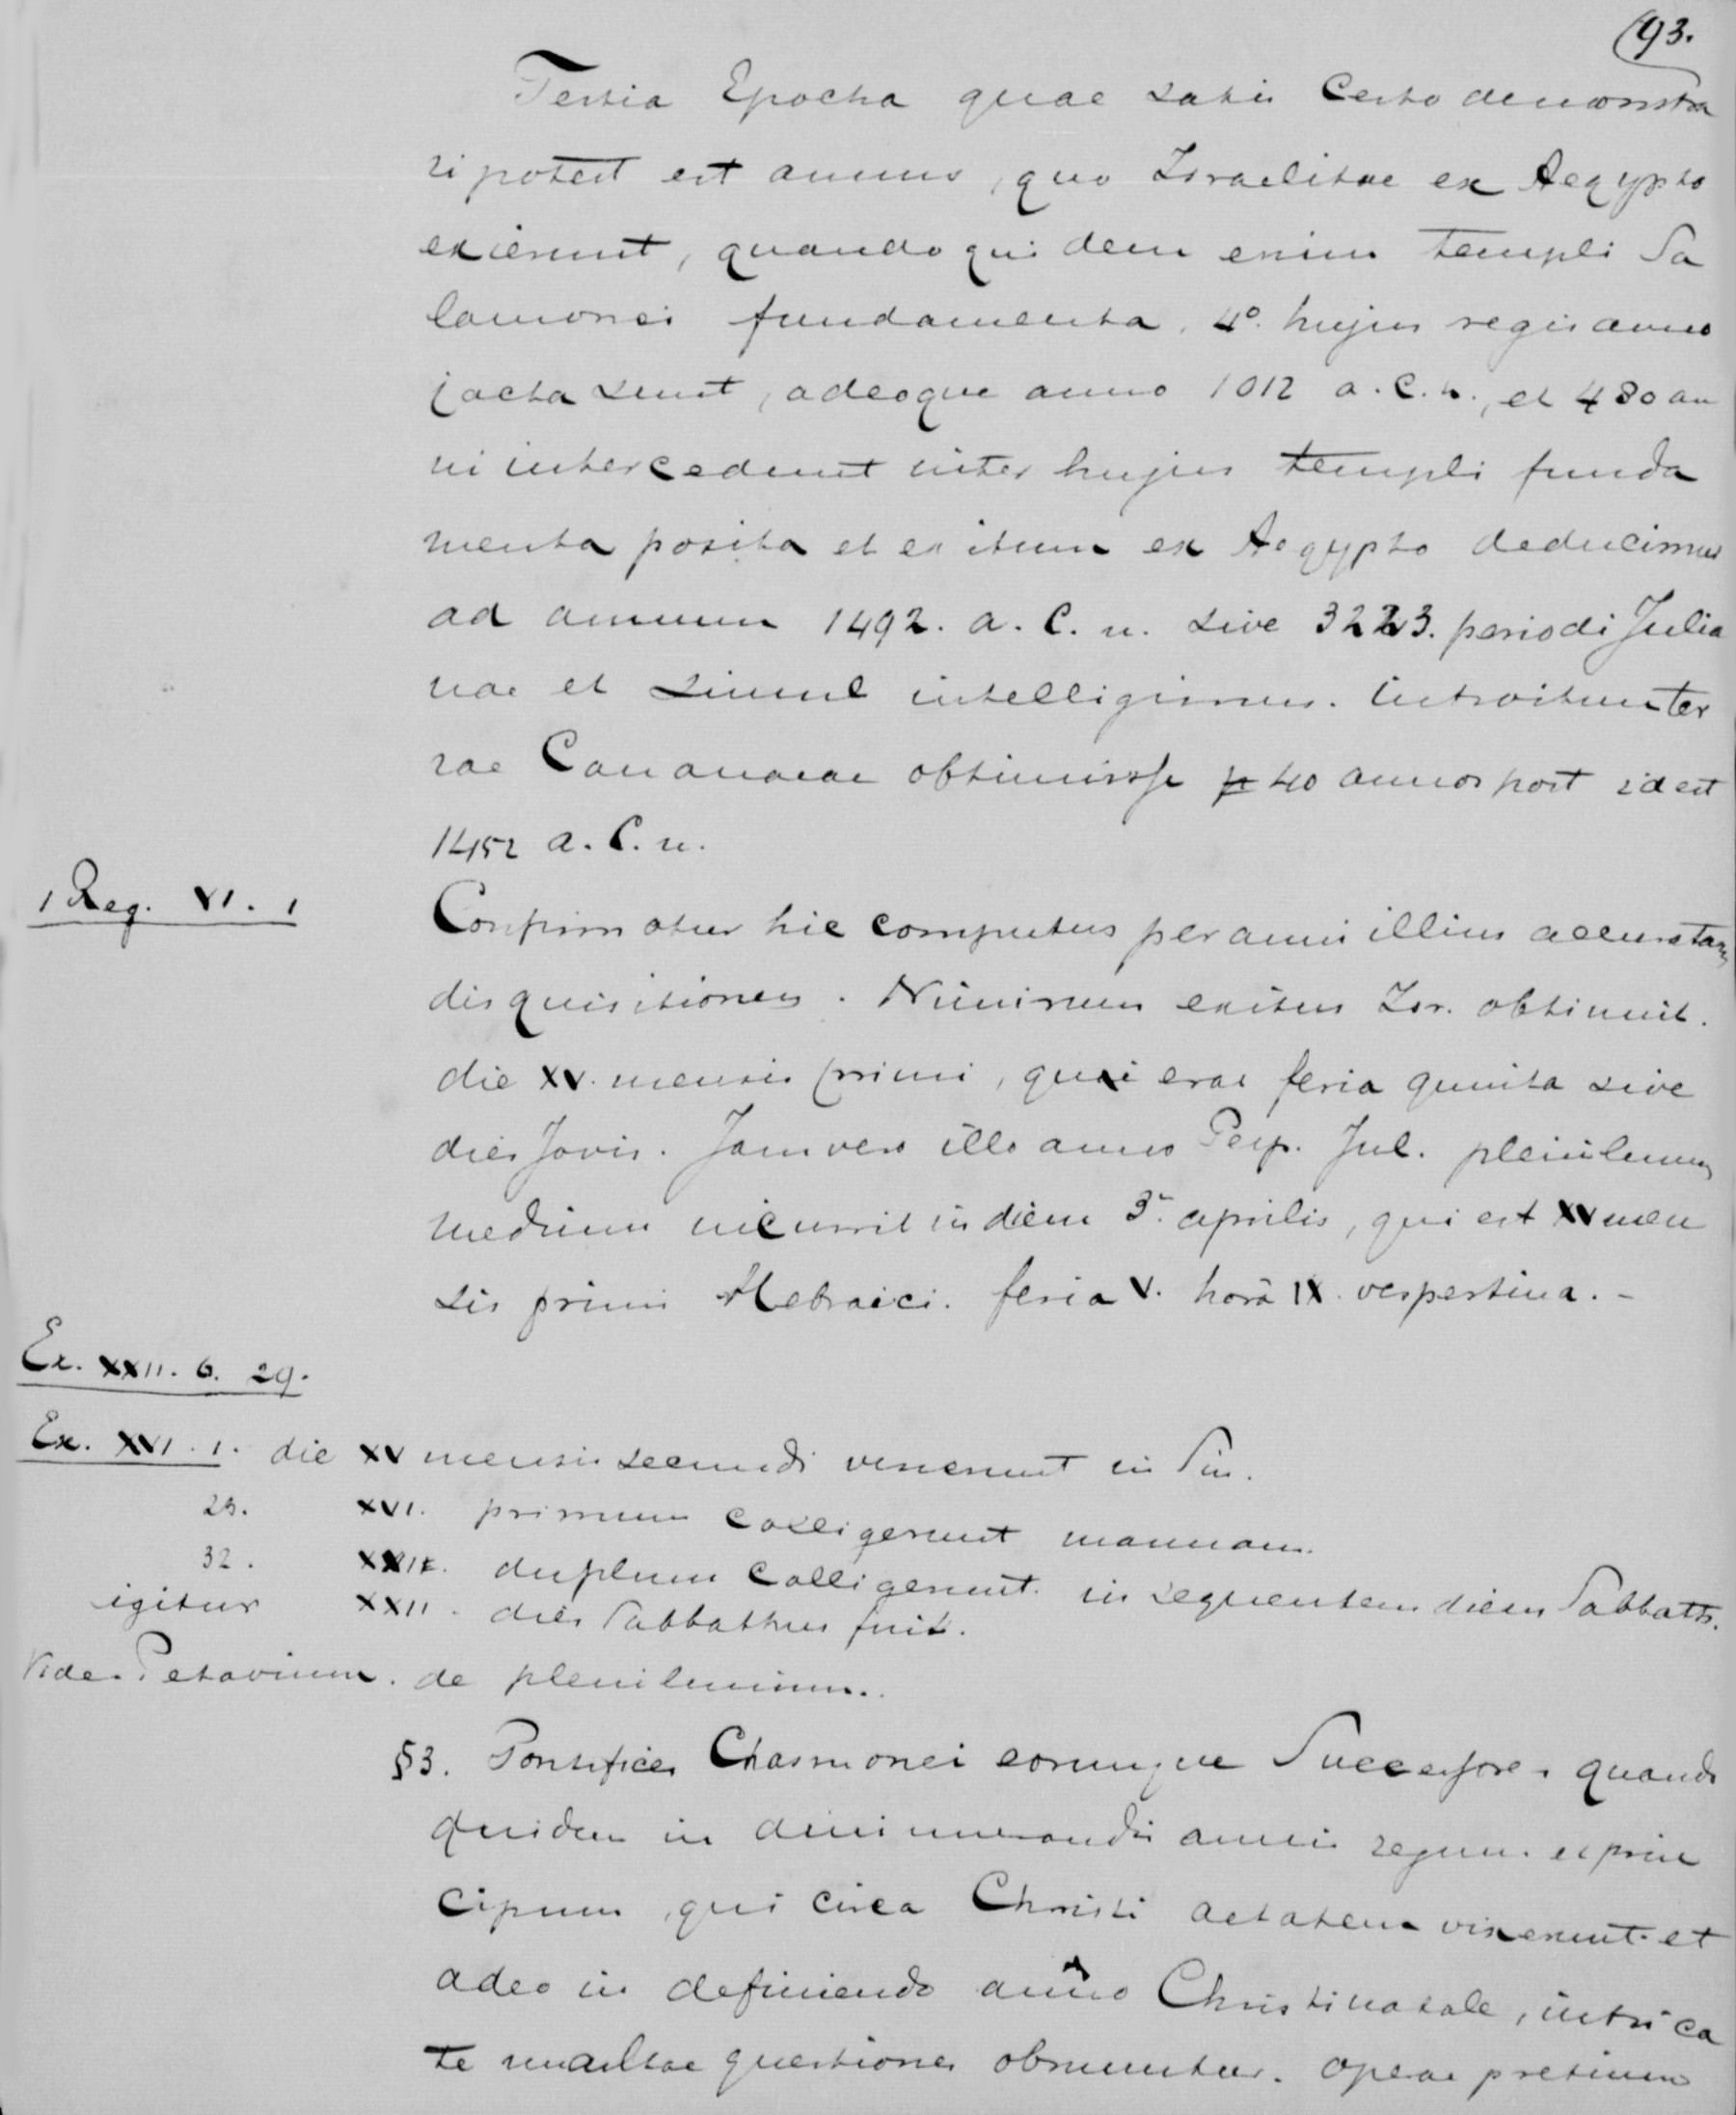 93.
Tertia Epocha quae satis certo demonstra
ri potest est annus, quo Israelitae ex Aegypto
exierunt, quandoquidem enim templi Sa
lamonei fundamenta, 4º. hujus regis anno
jacta sunt, adeoque anno 1012 a. C. n., et 480 an
ni intercedunt inter hujus templi funda
menta posita et exitum ex Aegypto deducimus
ad annum 1492. a. C. n. sive 3223. periodi Julia
nae et simul intelligimus. introitum ter
rae Cananaeae obtinuisse 40 annos post id est
1452 a. C. n.
1 Reg. VI. 1
Confirmatur hic computus per anni illius accuratam
disquisitionem. Nimirum exitus Isr. obtinuit.
die XV. mensis primi, quae erat feria quinta sive
dies Jovis. Jam vero illo anno Per. Jul. plenilunium
medium incurrit in diem 3. aprilis, qui est XV men
sis primi Hebraici. feria V. horâ IX. vespertina. -
Ex. XXII. 6. 29.
Ex. XVI. 1. die XV mensis secundi venerunt in Sin.
23. XVI. primum colligerunt mannam.
32. duplum colligerunt. in sequentem diem Sabbath.
igitur XXII. dies Sabbathus fuit.
Vide. Petavium. de plenilunium.
§3. Pontifices Chasmonei eorumque Successores quando
quidem in dinumerandis annis regum et prin
cipum, qui circa Christi aetatem vixerunt et
adeo in definiendo anno Christi natale, intrica
te multae questiones obruuntur. operae pretium